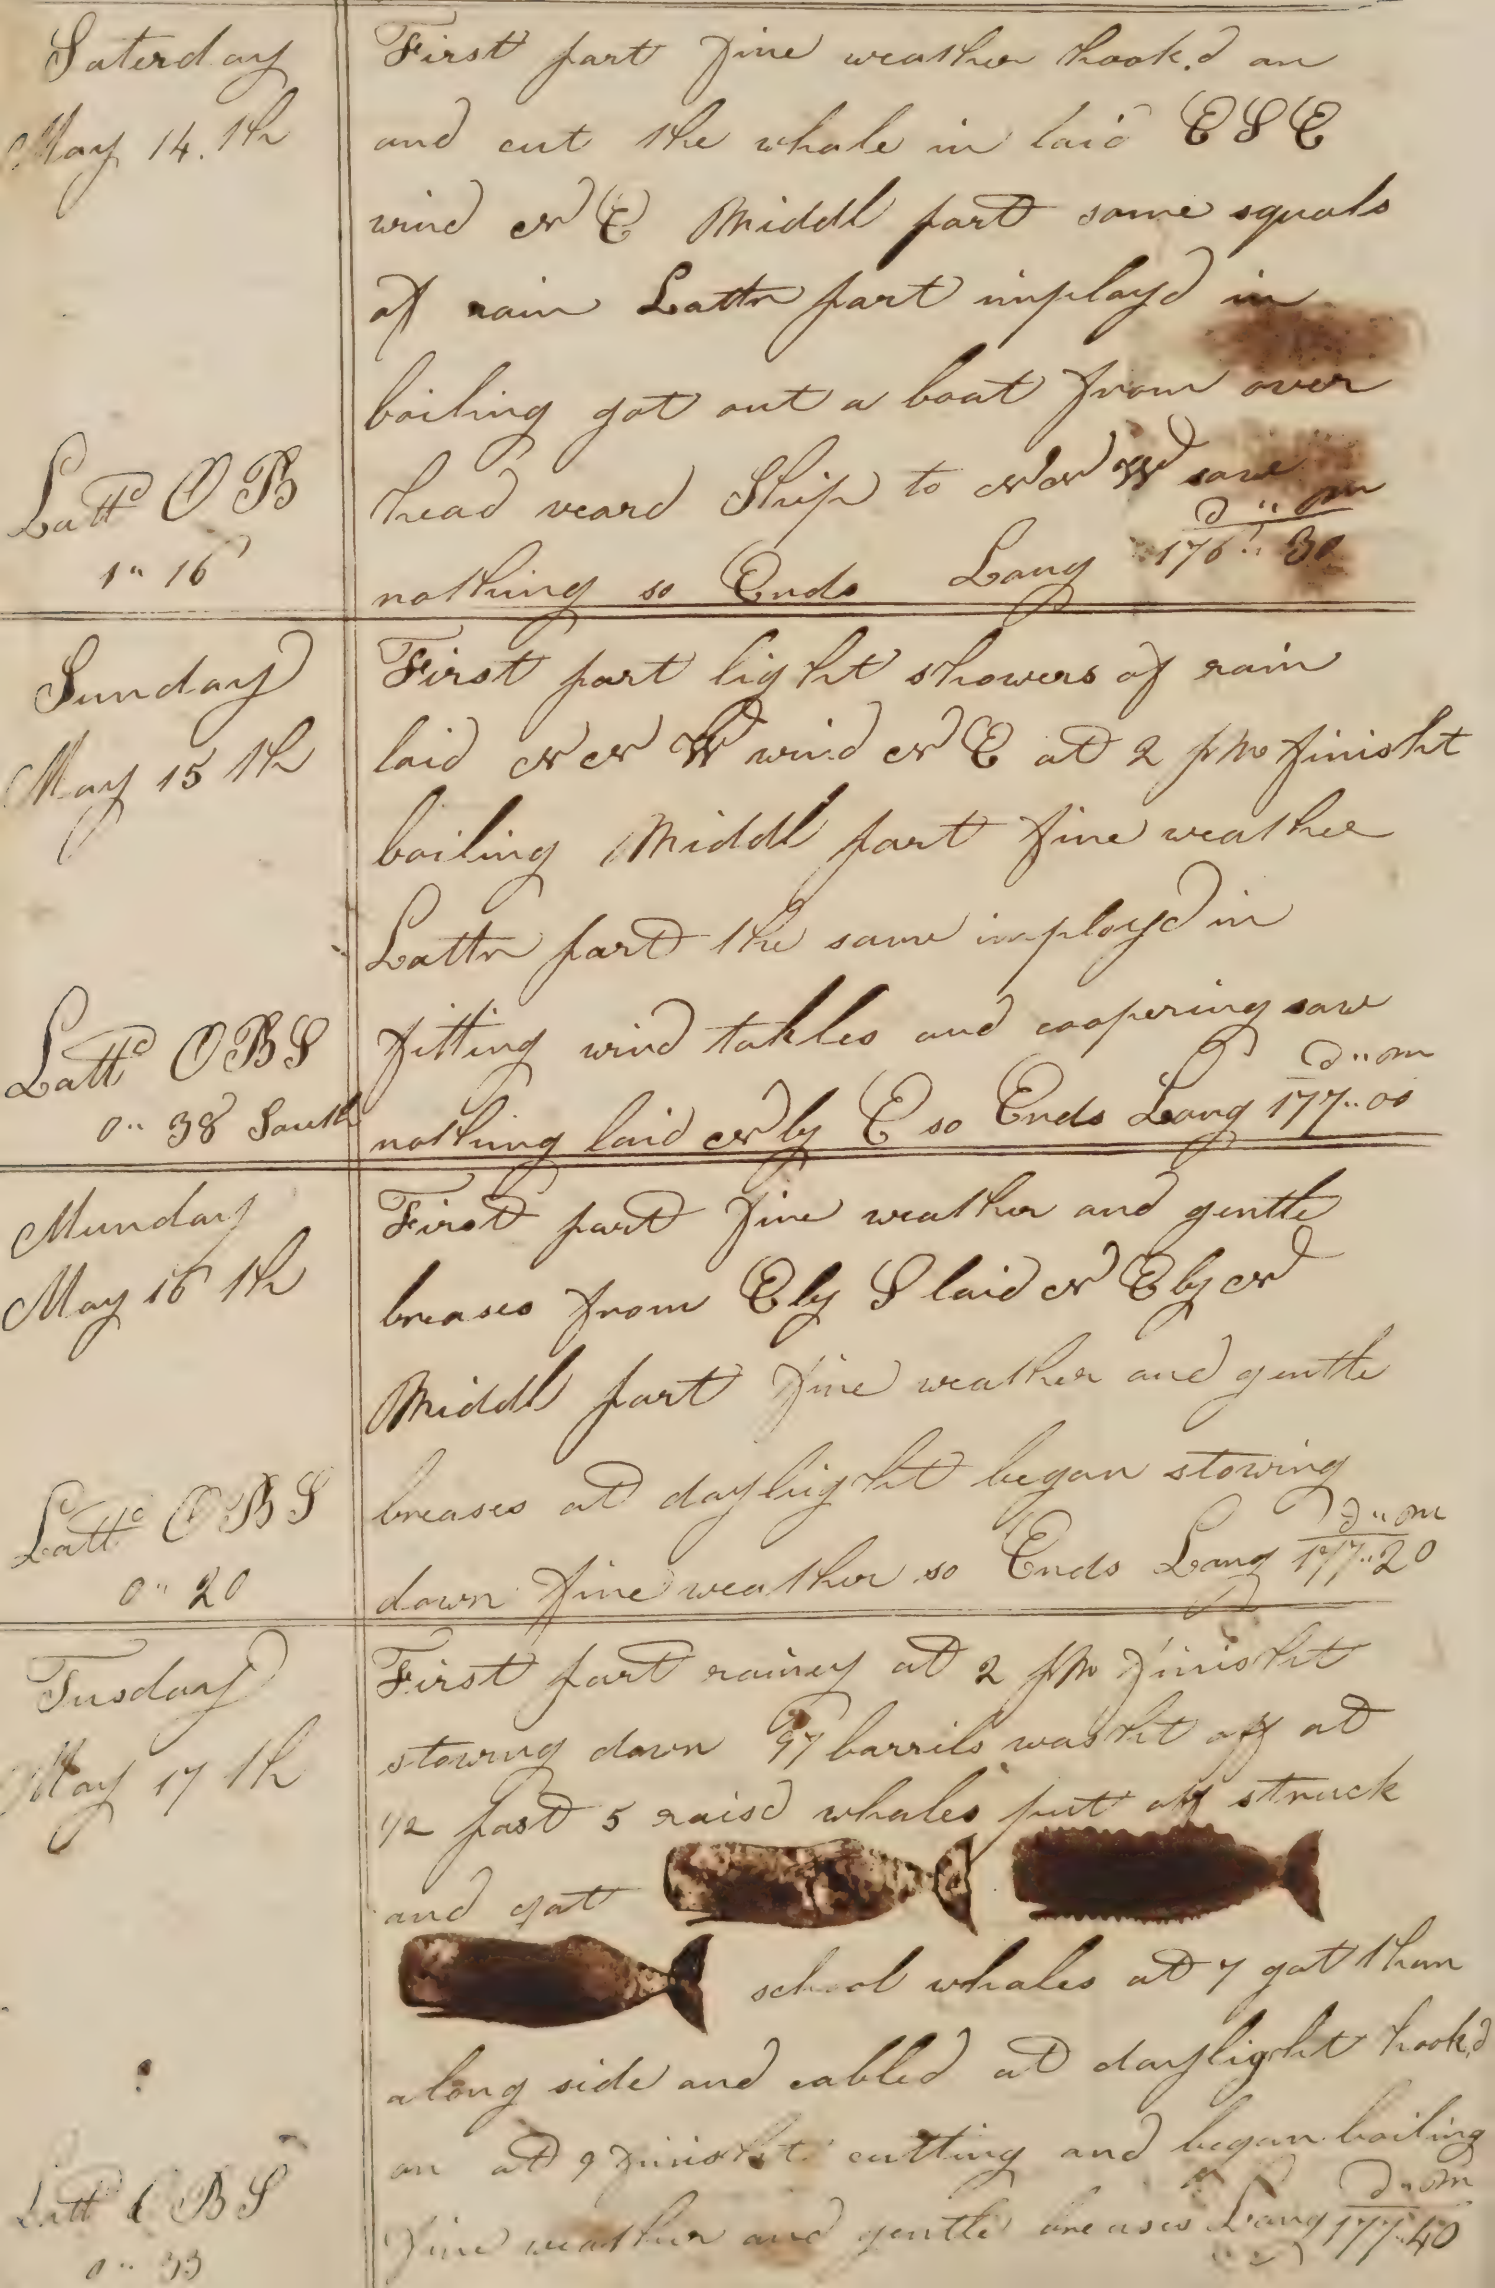 Saterday
May 14.th
Lattd OB
1" 16
First part fine weather hook.d on
and cut the whale in laid ESE
wind NE Middl part some squals
of rain Lattr part imployd in
boiling got out a boat from over
head weard Ship to NNW saw
nothing so Ends Long
d " m
176 " 30
Sunday
May 15 th
Lattd OBS
0 " 38 South
First part light showers of rain
laid NNW wind NE at 2 pm finisht
boiling Middl part fine weather
Lattr part the same imployd in
fitting wind takles and coopering saw
nothing laid N by E so Ends Long
d " m
177 " 00
Munday
May 16 th
Lattd OBS
0 " 20
First part fine weather and gentle
breases from E by S laid NE by N
Middl part fine weather and gentle
breases at daylight began stowing
down fine weather so Ends Long
d " m
177 " 20
Tusday
May 17 th
Latt OBS
0 " 33
First part rainey at 2 pm finisht
stowing down 97 barrils washt off at
1/2 past 5 raisd whales put off struck
and got
school whales at 7 got them
along side and cabled at daylight hook.d
on at 9 finisht cutting and began boiling
fine weather and gentle breases Long
d " m
177 " 40